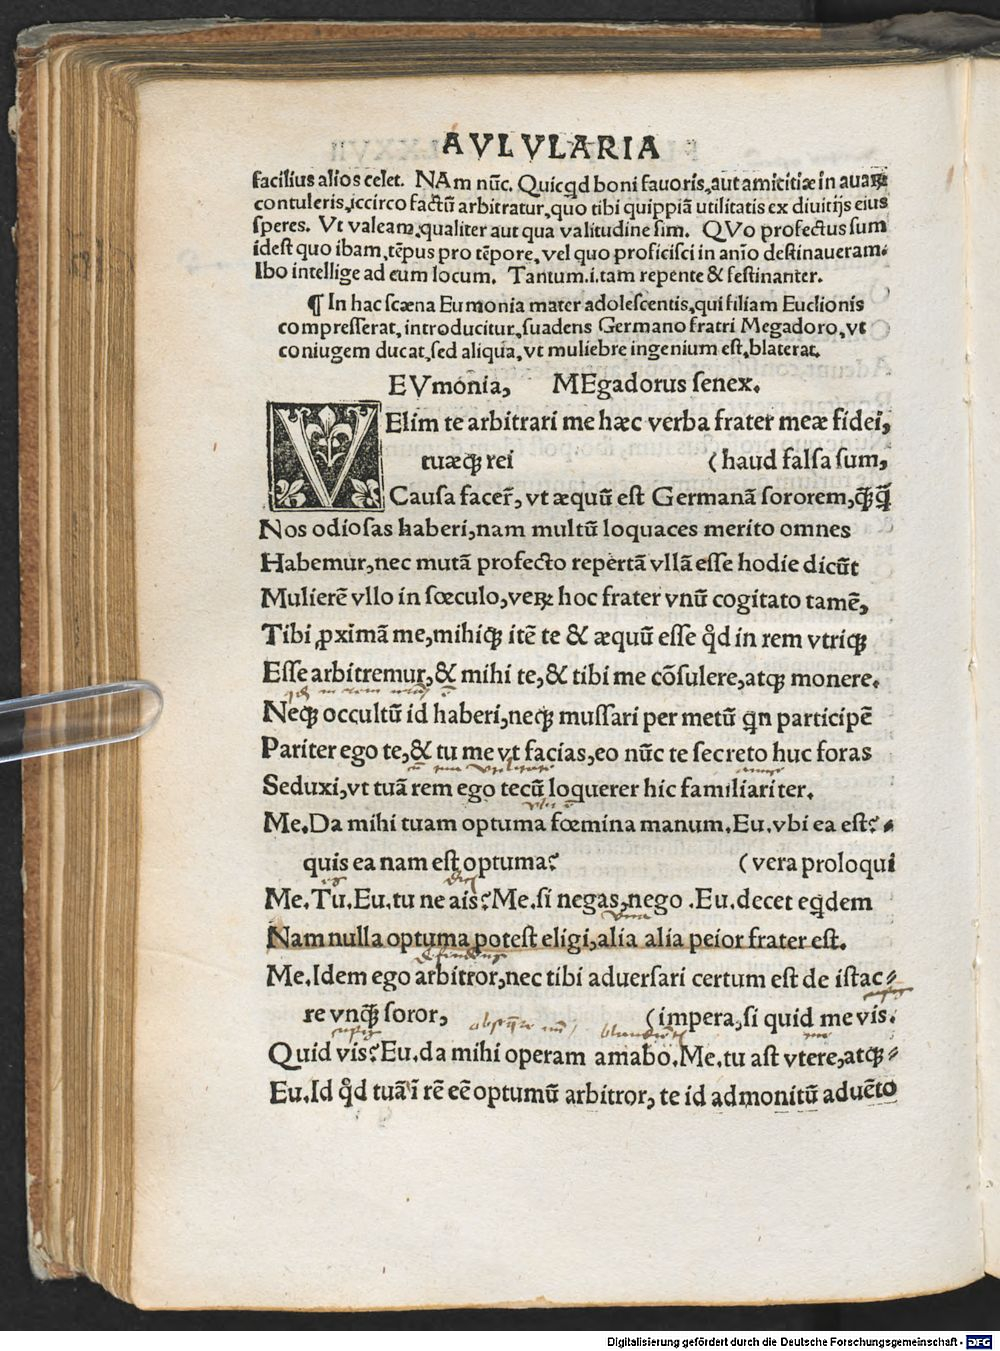 AVLVLARIA
facilius alios celet. NAm nūc. Quicq̣d boni fauoris, aut amicitiæ in auaꝝ
contuleris, iccirco factū arbitratur, quo tibi quippiā utilitatis ex diuitijs eius
speres. Vt valeam, qualiter aut qua valitudine sim. QVo profectus sum
idest quo ibam, tēpus pro tēpore, vel quo proficisci in aīo destinaueram.
Ibo intellige ad eum locum. Tantum.i.tam repente & festinanter.
¶ In hac scæna Eumonia mater adolescentis, qui filiam Euclionis
compresserat, introducitur, suadens Germano fratri Megadoro, vt
coniugem ducat, sed aliqua, vt muliebre ingenium est, blaterat.
EVmonia, MEgadorus senex.
VElim te arbitrari me hæc verba frater meæ fidei,
tuæqꝫ rei (haud falsa sum,
Causa facer̄, vt æquū est Germanā sororem, qꝫ̄qꝫ̄
Nos odiosas haberi, nam multū loquaces merito omnes
Habemur, nec mutā profecto repertā vllā esse hodie dicūt
Mulierē vllo in sœculo, veꝝ hoc frater vnū cogitato tamē,
Tibi ꝓximā me, mihiqꝫ itē te & æquū esse qd̄ in rem vtriqꝫ
Esse arbitremur, & mihi te, & tibi me cōsulere, atqꝫ monere.
Neqꝫ occultū id haberi, neqꝫ mussari per metū qn̄ participē
Pariter ego te, & tu me vt facias, eo nūc te secreto huc foras
Seduxi, vt tuā rem ego tecū loquerer hic familiariter.
Me. Da mihi tuam optuma fœmina manum. Eu. vbi ea est?
quis ea nam est optuma? (vera proloqui
Me. Tu. Eu. tu ne ais? Me. si negas, nego. Eu. decet eq̣dem
Nam nulla optuma potest eligi, alia alia peior frater est.
Me. Idem ego arbitror, nec tibi aduersari certum est de istac⸗
re vnqꝫ̄ soror, (impera, si quid me vis.
Quid vis? Eu. da mihi operam amabo. Me. tu ast vtere, atqꝫ⸗
Eu. Id qd̄ tuā ī rē eē optumū arbitror, te id admonitū aduēto
Digitalisierung gefördert durch die Deutsche Forschungsgemeinschaft - DFG